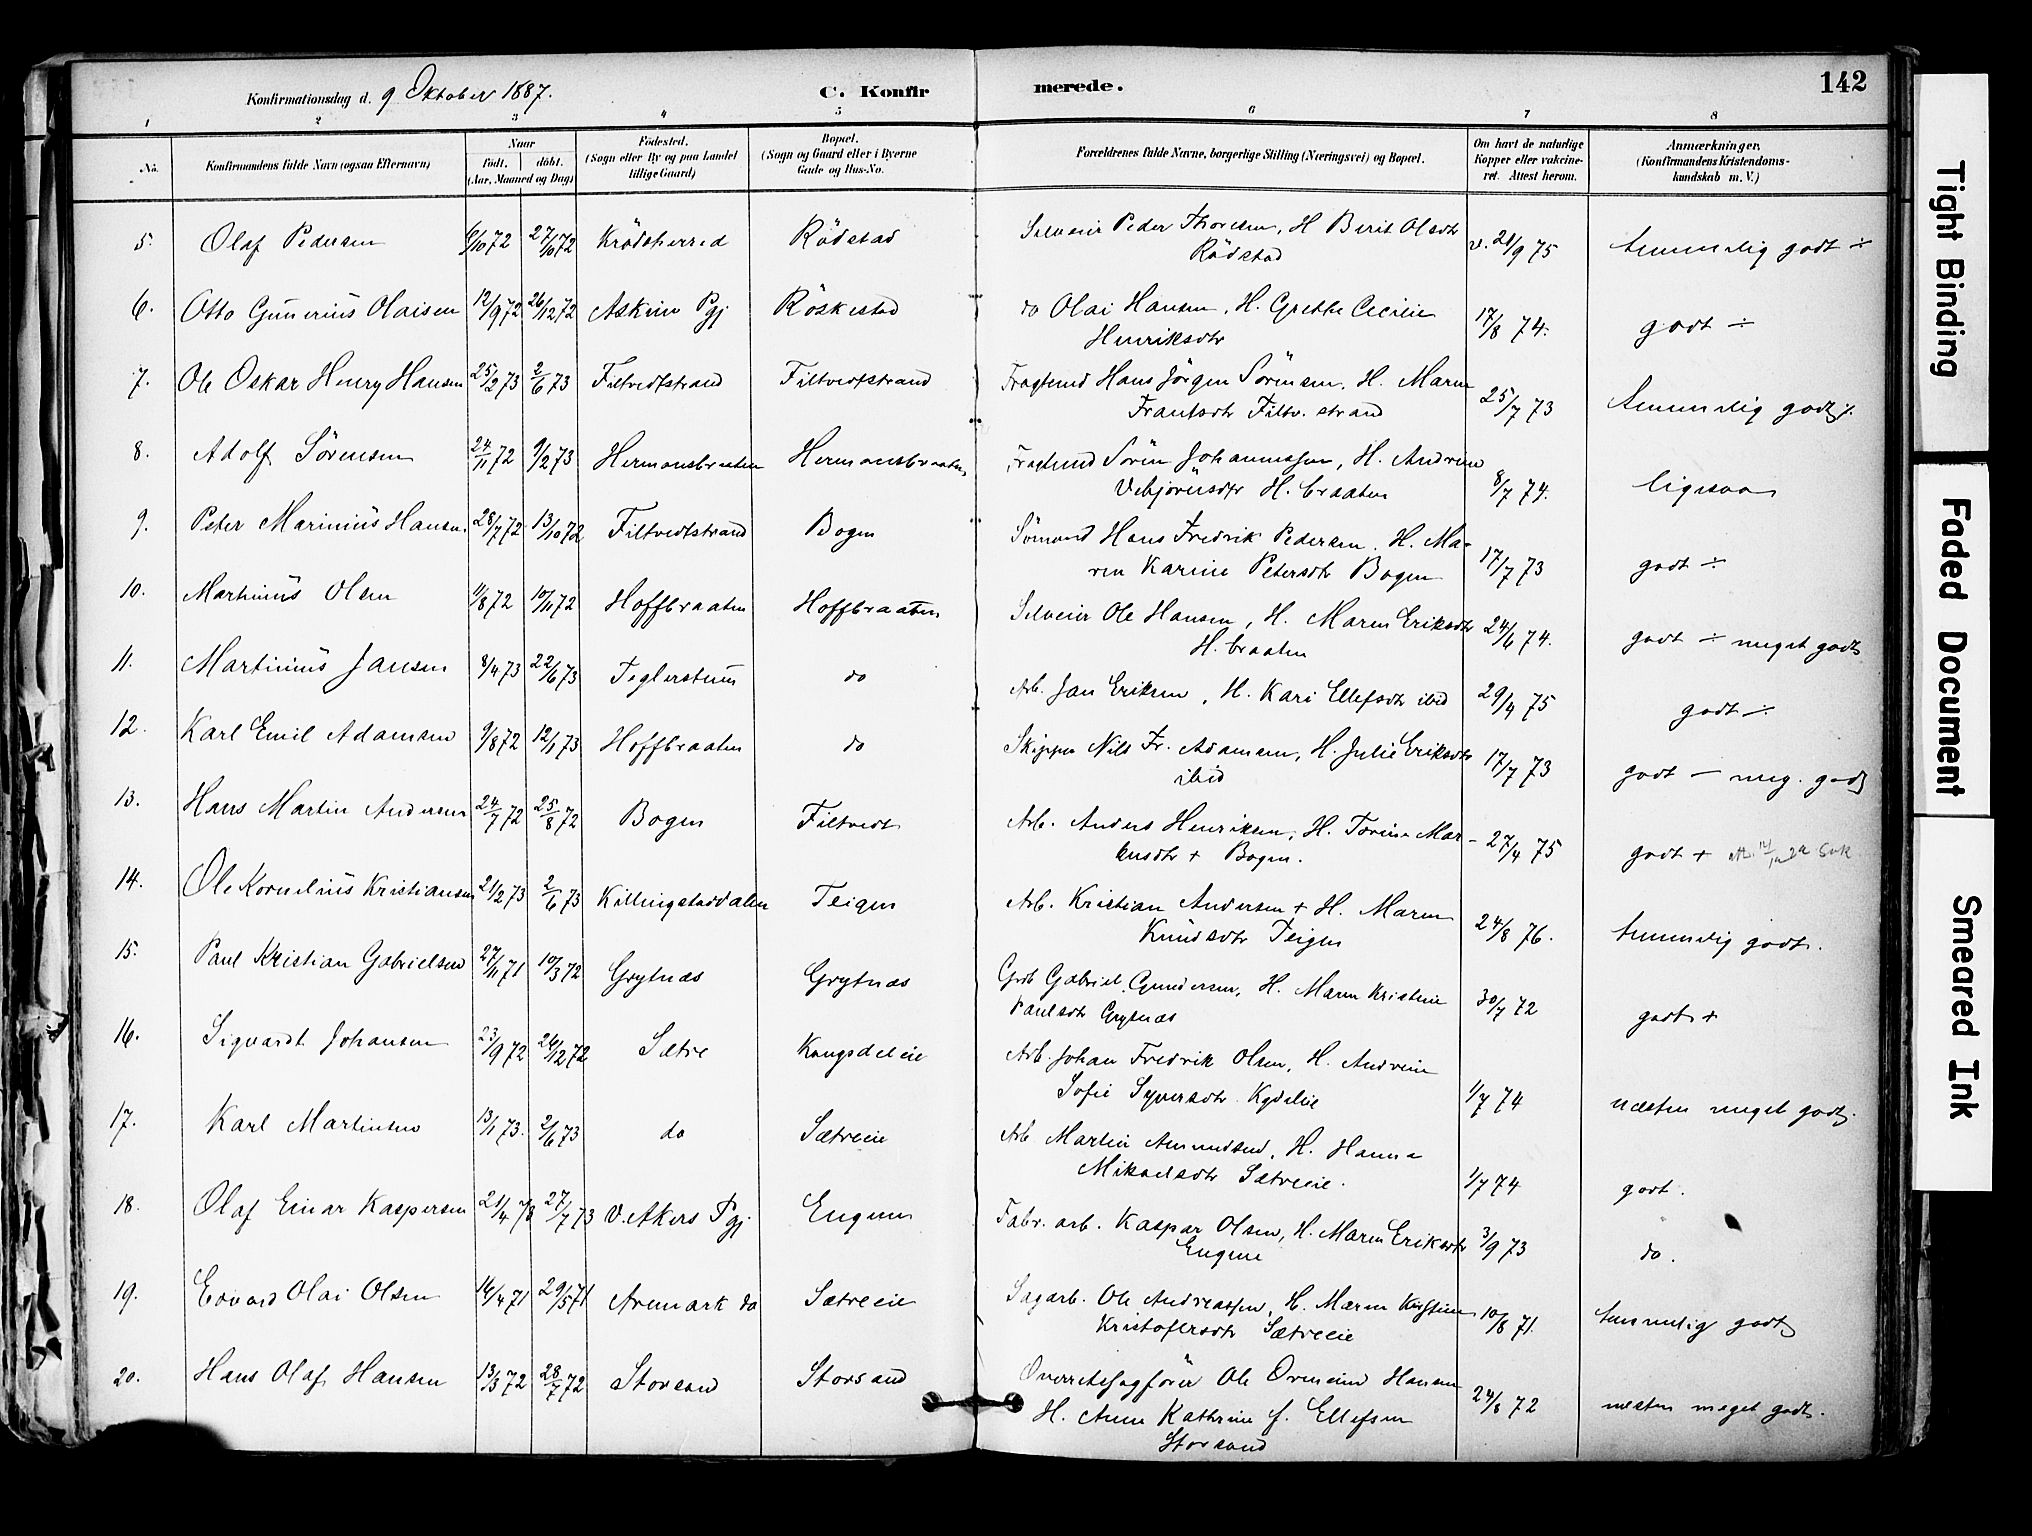 Konfirmationsdag d. 9 Oktober 1887.
C. Konfirmerede.
142
1 2 3 4 5 6 7 8
No. Konfirmandens fulde Navn (ogsaa Efternavn) Naar født. døbt. (Aar, Maaned og Dag) Fødested. (Sogn eller By og paa Landet tillige Gaard) Bopæl. (Sogn og Gaard eller i Byerne Gade og Hus-No. Forældrenes fulde Navne, borgerlige Stilling (Næringsvei) og Bopæl. Om havt de naturlige Kopper eller vakcineret. Attest herom. Anmærkninger. (Konfirmandens Kristendomskundskab m. V.)
5. Olaf Pedersen 6/10 72 27/10 72 Krödsherred Rödstad Selveier Peder Thoresen, H. Berit Olsdtr
Rödstad v. 21/9 75 temmelig godt ÷
6. Otto Gunerius Olaisen 12/9 72 26/12 72 Askim Pgj Röskestad do Olai Hansen, H. Grethe Cecilie
Henriksdtr 17/8 74. godt ÷
7. Ole Oskar Henry Hansen 25/2 73 2/6 73 Filtvedtstrand Filtvedtstrand Fragtemd Hans Jörgen Sörensen, H. Maren
Frantsdtr Filtv. strand 25/7 73 temmelig godt
8. Adolf Sörensen 24/11 72 9/2 73 Hermansbraaten Hermansbraaten Fragtemd Sören Johannessen, H. Andrine
Vebjörnsdtr H. braaten 8/7 74. ligesaa
9. Peter Marinius Hansen 28/7 72 13/10 72 Filtvedtstrand Bogen Sömand Hans Fredrik Pedersen, H. Ma-
ren Karine Petersdtr Bogen 17/7 73 godt ÷
10. Martinius Olsen 11/8 72 10/11 72 Hoffbraaten Hoffbraaten Selveier Ole Hansen, H. Maren Eriksdtr
H. braaten 24/6 74. godt ÷ meget godt
11. Martinius Jansen 8/4 73 22/6 73 Teglerstuen do Arb. Jan Eriksen, H. Kari Ellefsdtr ibid 29/4 75 godt ÷
12. Karl Emil Adamsen 9/8 72 12/1 73 Hoffbraaten do Skipper Nils Fr. Adamsen, H. Julie Eriksdtr
ibid 17/7 73 godt — meg. godt
13. Hans Martin Andersen 24/7 72 25/8 72 Bogen Filtvedt Arb. Anders Henriksen, H. Torine Mar-
kusdtr + Bogen. 27/4 75 godt +
14. Ole Kornelius Kristiansen 21/2 73 2/6 73 Killingstaddalen Teigen Arb. Kristian Andersen + H. Maren
Knudsdtr Teigen 24/8 76. temmelig godt.
15. Paul Kristian Gabrielsen 27/11 71 10/3 72 Grytnæs Grytnæs Grdb Gabriel Gundersen, H. Maren Kristine
Paulsdtr Grytnæs 30/7 72 godt +
16. Sigvardt Johansen 23/9 72 26/12 72 Sætre Kongsdeleie Arb. Johan Fredrik Olsen, H. Andrine
Sofie Syversdtr Kgdeleie 1/7 74 næsten meget godt.
17. Karl Martinsen 13/1 73. 2/6 73 do Sætreeie Arb Martin Amundsen, H. Hanna
Mikaelsdtr Sætreeie. 1/7 74 godt.
18. Olaf Einar Kaspersen 21/4 73 27/7 73 V. Akers Pgj Engene Fabr. arb. Kaspar Olsen, H. Maren Eriksdtr
Engene 3/9 73 do.
19. Edvard Olai Olsen 16/4 71 29/5 71 Aremark do Sætreeie Sagarb. Ole Andreassen, H. Maren Kirstine
Kristofersdtr Sætreeie 10/8 71. temmelig godt
20. Hans Olaf Hansen 13/3 72 28/7 72 Storsand Storsand Overretssagfører Ole Hansen
H. Anne Kathrine f. Ellefsen
Storsand 24/8 72 næsten meget godt.
Tight Binding
Faded Document
Smeared Ink